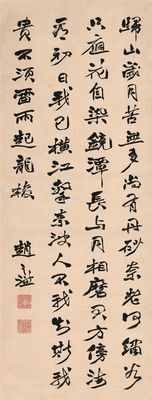 歸山歲月苦無多尚有丹砂奈老何繡谷
只應花自染鏡潭長與月相磨君方傍海
看初日我已橫江擊素波人不我知斯我
貴不須雷雨起龍梭
趙